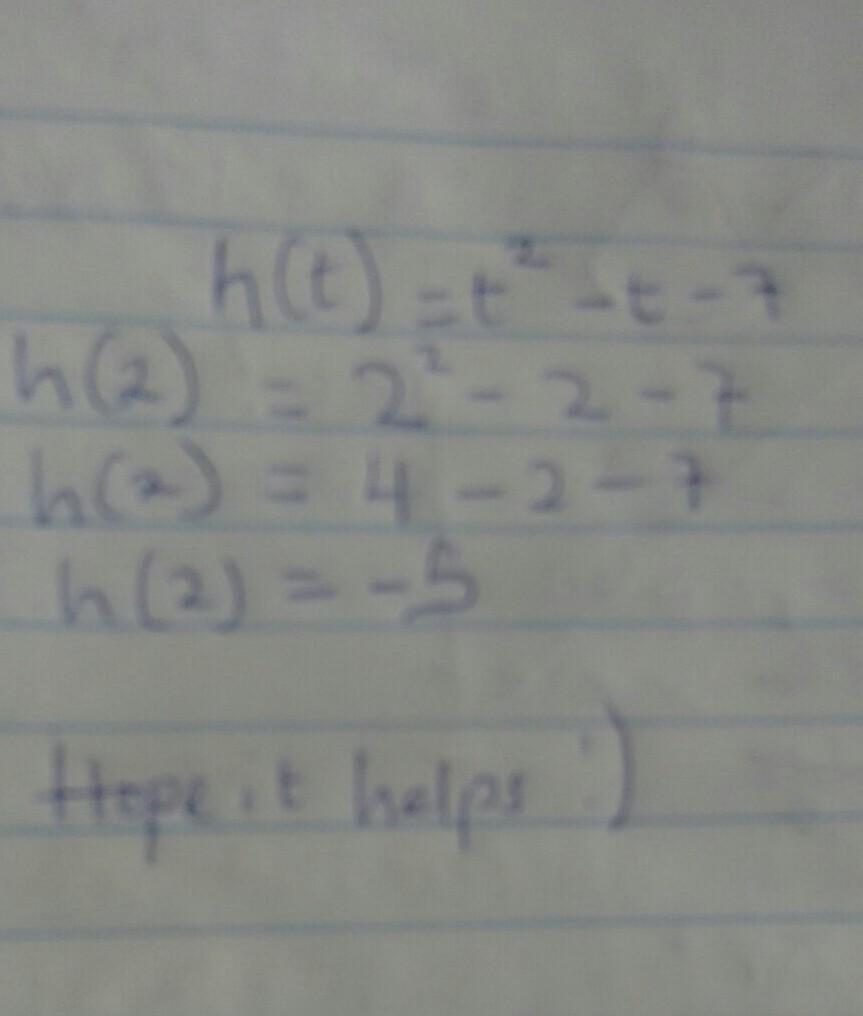 h(t) = t² - t - 7
h(2) = 2² - 2 - 7
h(2) = 4 - 2 - 7
h(2) = -5
Hope it helps :)